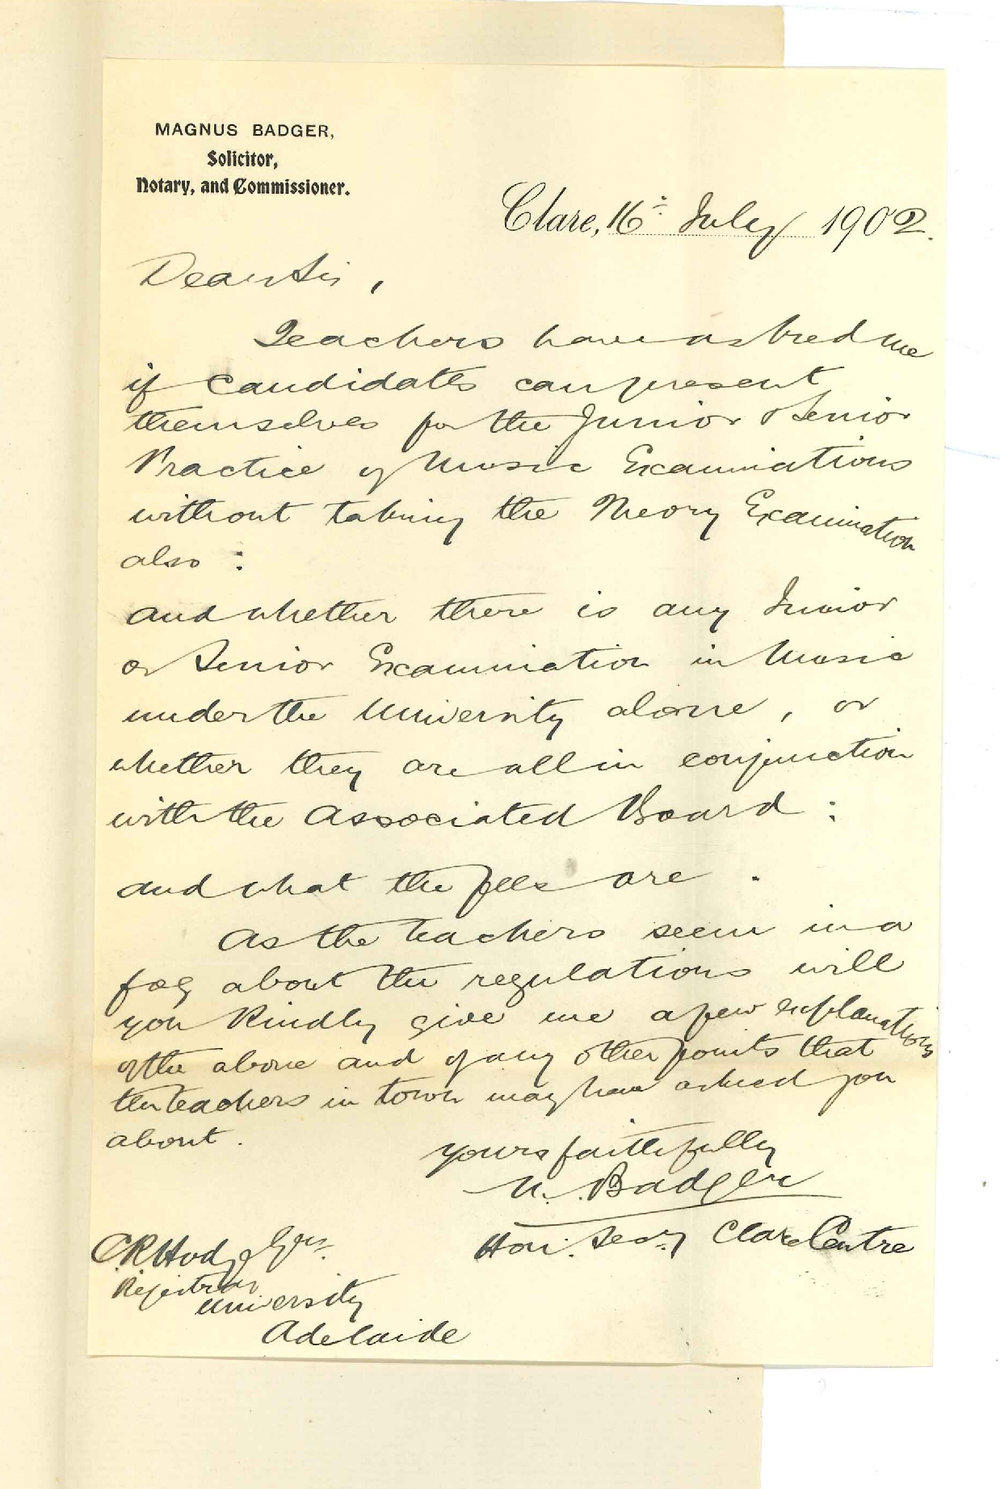 MAGNUS BADGER,
Solicitor,
Notary, and Commissioner.
Clare, 16th July 1902.
Dear Sir,
Teachers have asked me
if Candidates can present
themselves for the Junior & Senior
Practice of Music Examinations
without taking the Theory Examination
also :
and whether there is any Junior
or Senior Examination in Music
under the University alone, or
whether they are all in conjunction
with the Associated Board :
and what the fees are .
As the teachers seem in a
fog about the regulations will
you kindly give me a few explanations
of the above and of any other points that
the teachers in town may have asked you
about .
yours faithfully
M. Badger
Hon. Secy Clare Centre
C R Hodge Esq.
Registrar
University
Adelaide